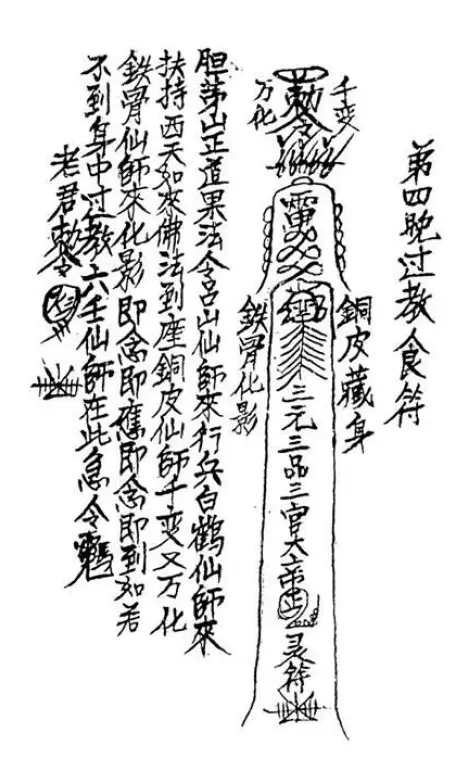 第四晚过教食符
千变
万化
勅令
雷
銅皮藏身
鉄骨化影
三元三品三官大帝
灵符
茅山正道果法令吕山仙師來行兵白鶴仙師來
扶持西天如來佛法到座銅皮仙師千变又万化
鉄骨仙師來化影即念即應即念即到如若
不到身中过教六壬仙師在此急令
老君勅令